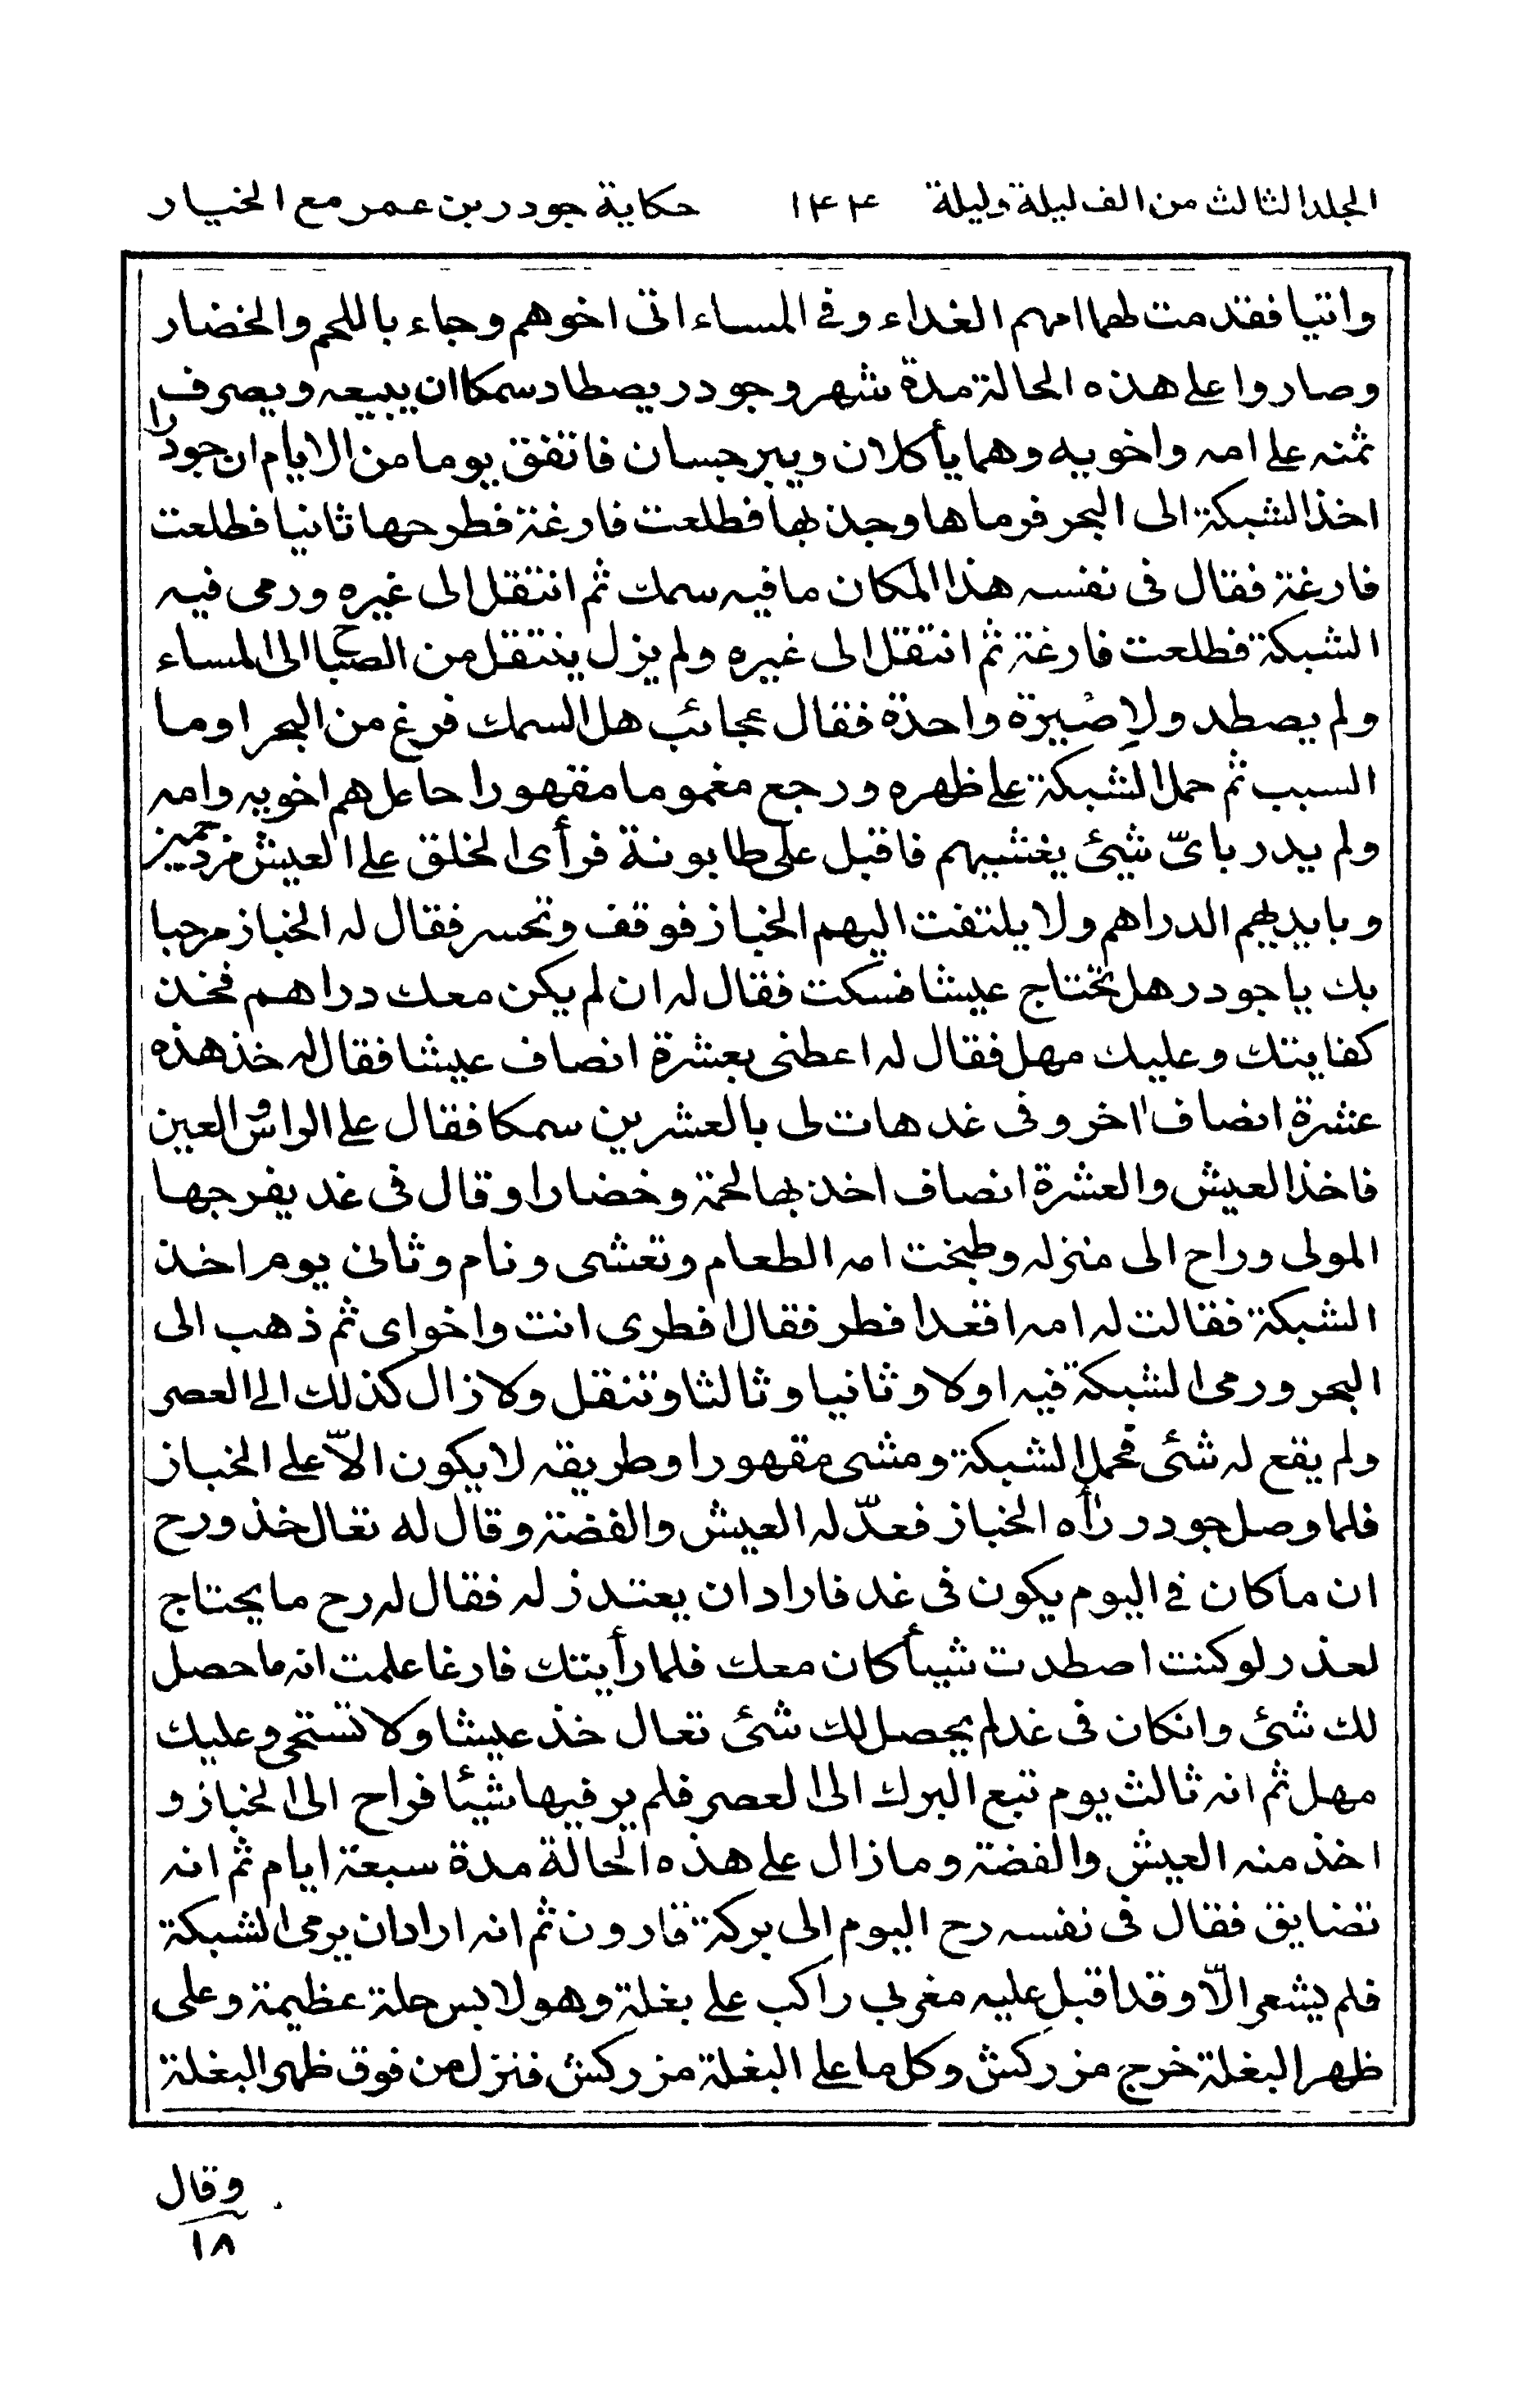 المجلد الثالث من الف ليلة وليلة ١٤٤ حكاية جودر بن عمر مع الخيار
واتيا فقدمت لهما امهم الغداء وفي المساء اتى اخوهم وجاء باللحم والخضار
وصاروا على هذه الحالة مدة شهر وجودر يصطاد سمكا ان يبيعه ويصرف
ثمنه على امه واخويه وهما يأكلان ويبرجسان فاتفق يوما من الايام ان جودرا
اخذ الشبكة الى البحر فرماها وجذبها فطلعت فارغة فطرحها ثانيا فطلعت
فارغة فقال في نفسه هذا المكان ما فيه سمك ثم انتقل الى غيره ورمى فيه
الشبكة فطلعت فارغة ثم انتقل الى غيره ولم يزل ينتقل من الصباح الى المساء
ولم يصطد ولا صيرة واحدة فقال عجائب هل السمك فرغ من البحر او ما
السبب ثم حمل الشبكة على ظهره ورجع مغموما مقهورا حاعل هم اخويه وامه
ولم يدر باىّ شيئ يغشيهم فاقبل على طابونة فرأى الخلق على العيش مزدحميز
وبايديهم الدراهم ولا يلتفت اليهم الخباز فوقف وتحسر فقال له الخباز مرحبا
بك يا جودر هل تحتاج عيشا فسكت فقال له ان لم يكن معك دراهم فخذ
كفايتك وعليك مهل فقال له اعطنى بعشرة انصاف عيشا فقال له خذ هذه
عشرة انصاف اخر وفى غد هات لى بالعشرين سمكا فقال على الراس والعين
فاخذ العيش والعشرة انصاف اخذ بها لحمة وخضارا وقال فى غد يفرجها
المولى وراح الى منزله وطبخت امه الطعام وتعشى ونام وثانى يوم اخذ
الشبكة فقالت له امه اقعد افطر فقال افطرى انت واخواى ثم ذهب الى
البحر ورمى الشبكة فيه اولا وثانيا وثالثا وتنقل ولا زال كذلك الى العصر
ولم يقع له شئى فحمل الشبكة ومشى مقهورا وطريقه لا يكون الاّ على الخباز
فلما وصل جودر رأه الخباز فعدّ له العيش والفضة وقال له تعال خذ ورح
ان ما كان في اليوم يكون فى غد فاراد ان يعتذر له فقال له رح ما يحتاج
لعذر لو كنت اصطدت شيأ كان معك فلما رأيتك فارغا علمت انه ما حصل
لك شئى وانكان فى غد لم يحصل لك شئى تعال خذ عيشا ولا تستحى وعليك
مهل ثم انه ثالث يوم تبع البرك الى العصر فلم ير فيها شيئا فراح الى الخباز و
اخذ منه العيش والفضة وما زال على هذه الحالة مدة سبعة ايام ثم انه
تضايق فقال فى نفسه رح اليوم الى بركة قارون ثم انه اراد ان يرمى الشبكة
فلم يشعر الّا وقد اقبل عليه مغربي راكب على بغلة وهو لابس حلة عظيمة وعلى
ظهر البغلة خرج مزركش وكل ما على البغلة مزركش فنزل من فوق ظهر البغلة
وقال
١٨